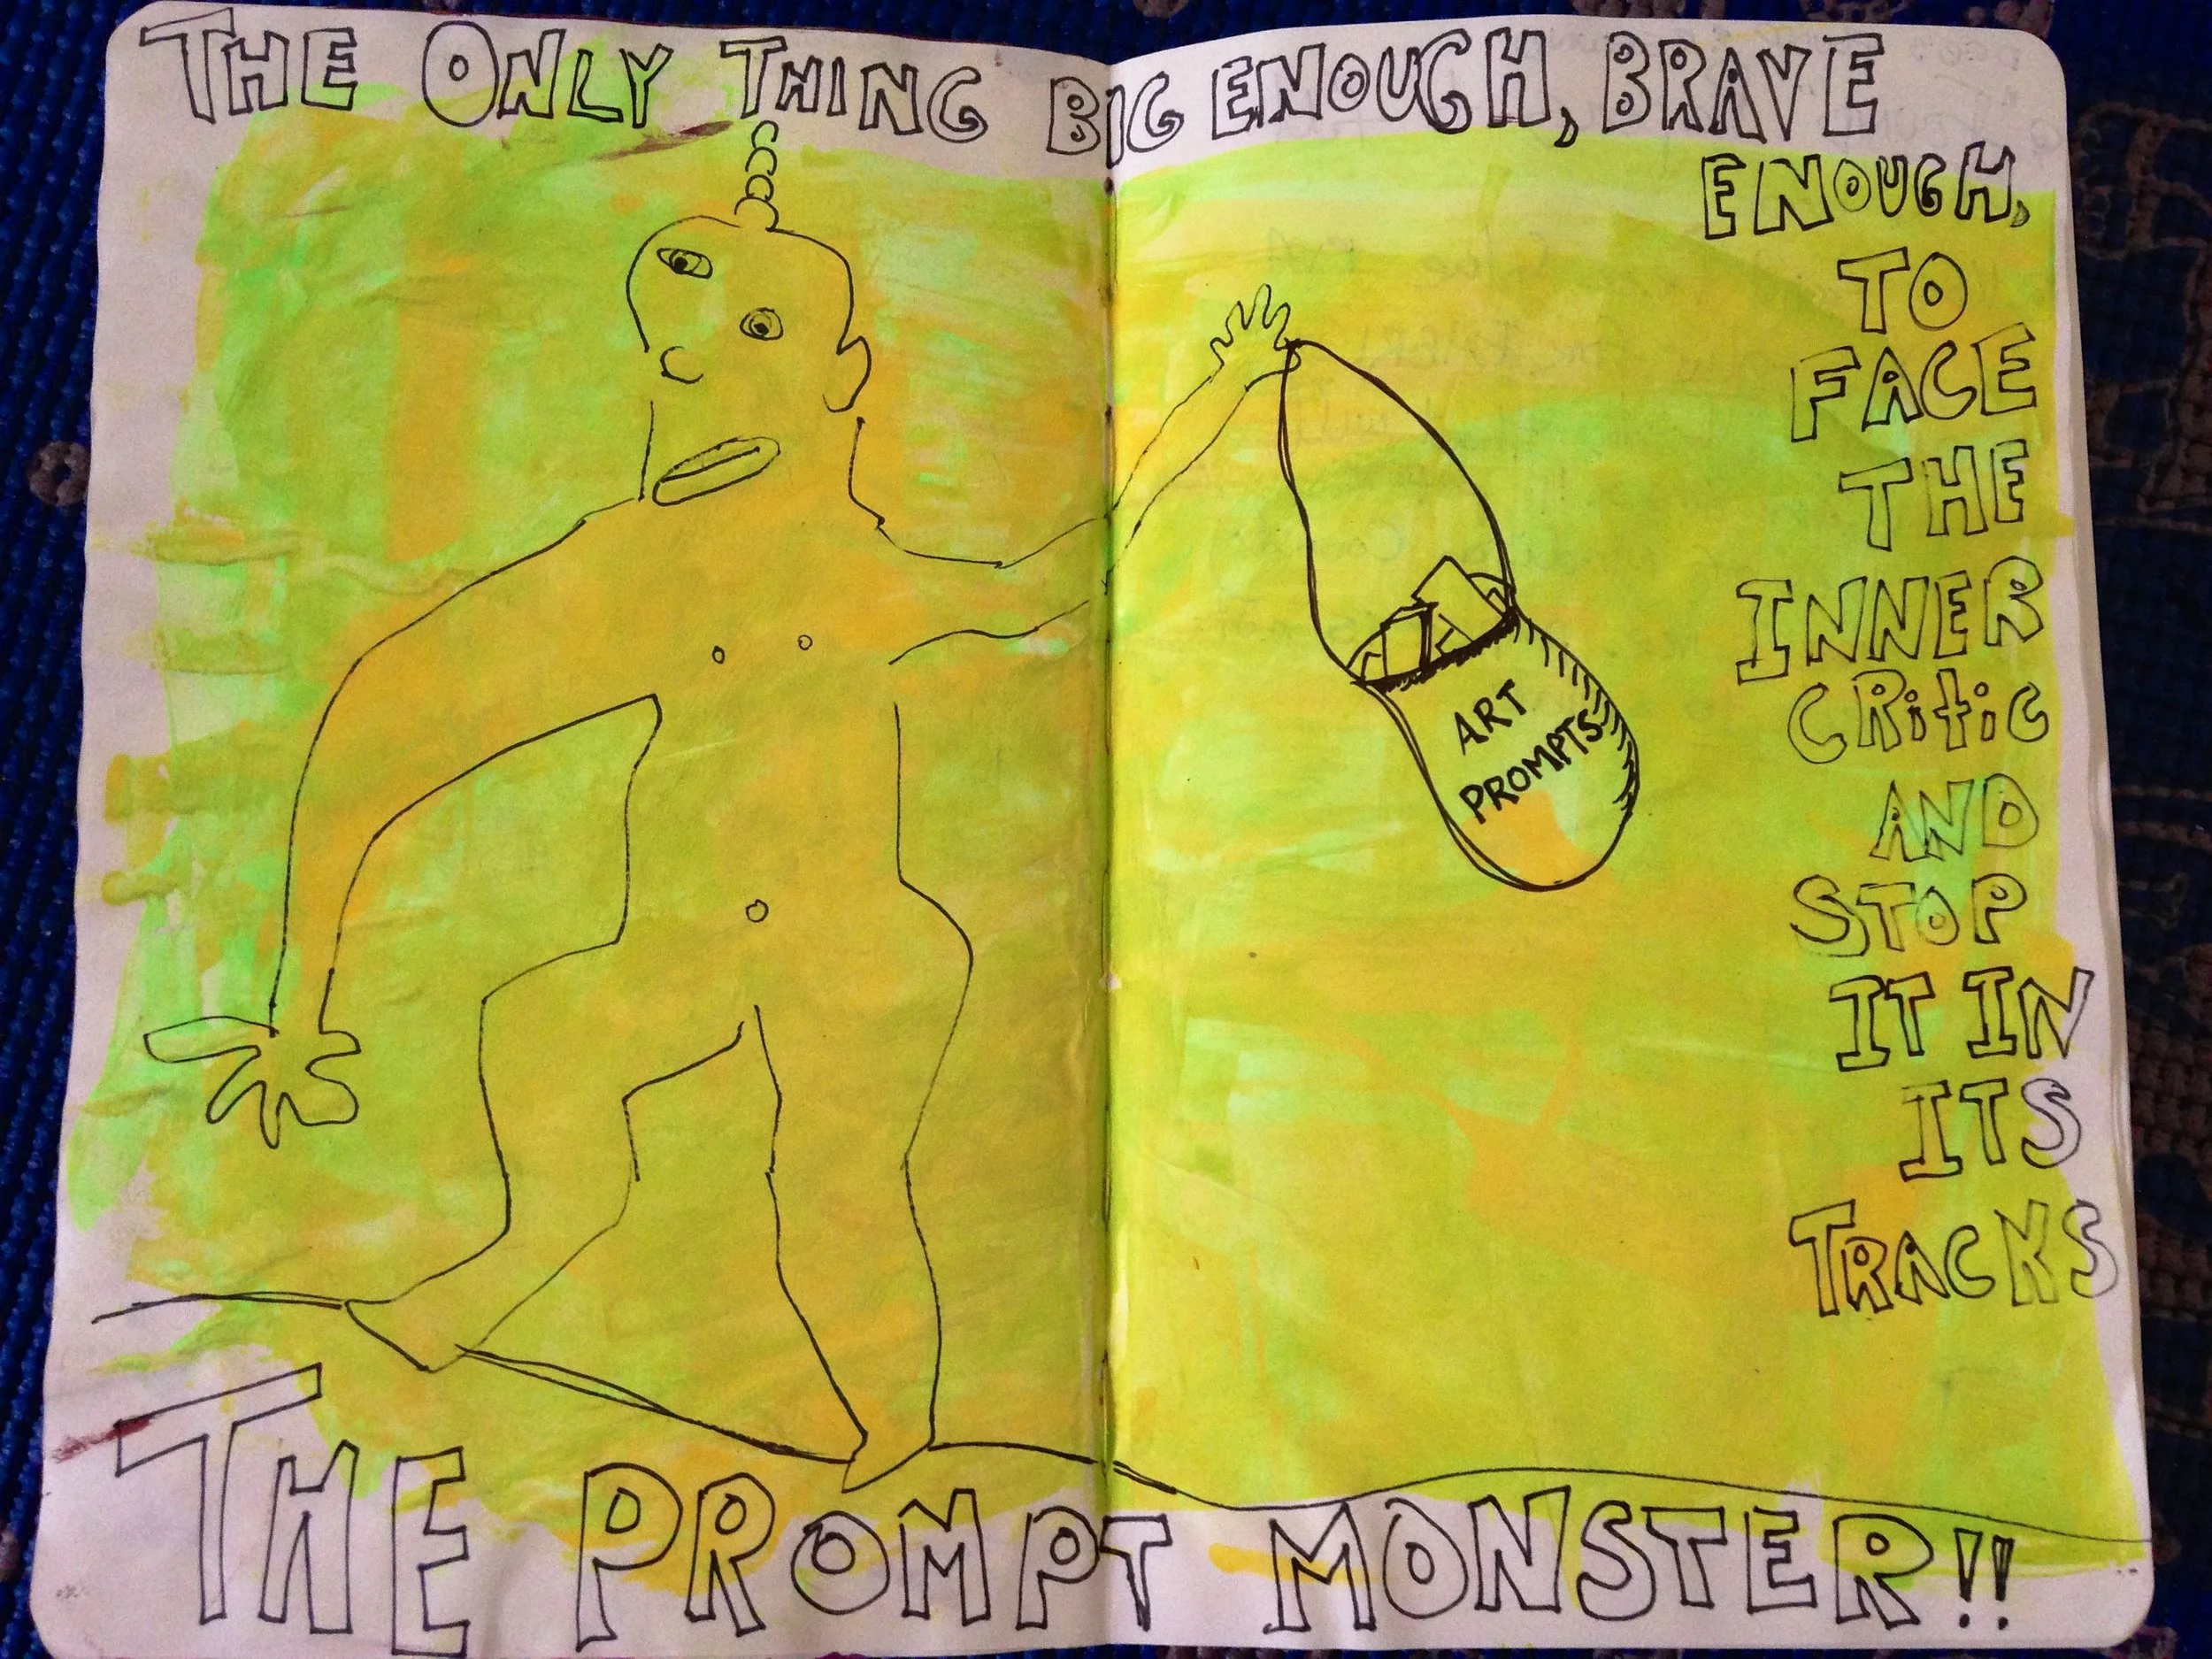 THE ONLY THING BIG ENOUGH, BRAVE
ENOUGH,
TO
FACE
THE
INNER
CRitiC
AND
STOP
IT IN
ITS
TRACKS
ART
PROMPTS
THE PROMPT MONSTER!!